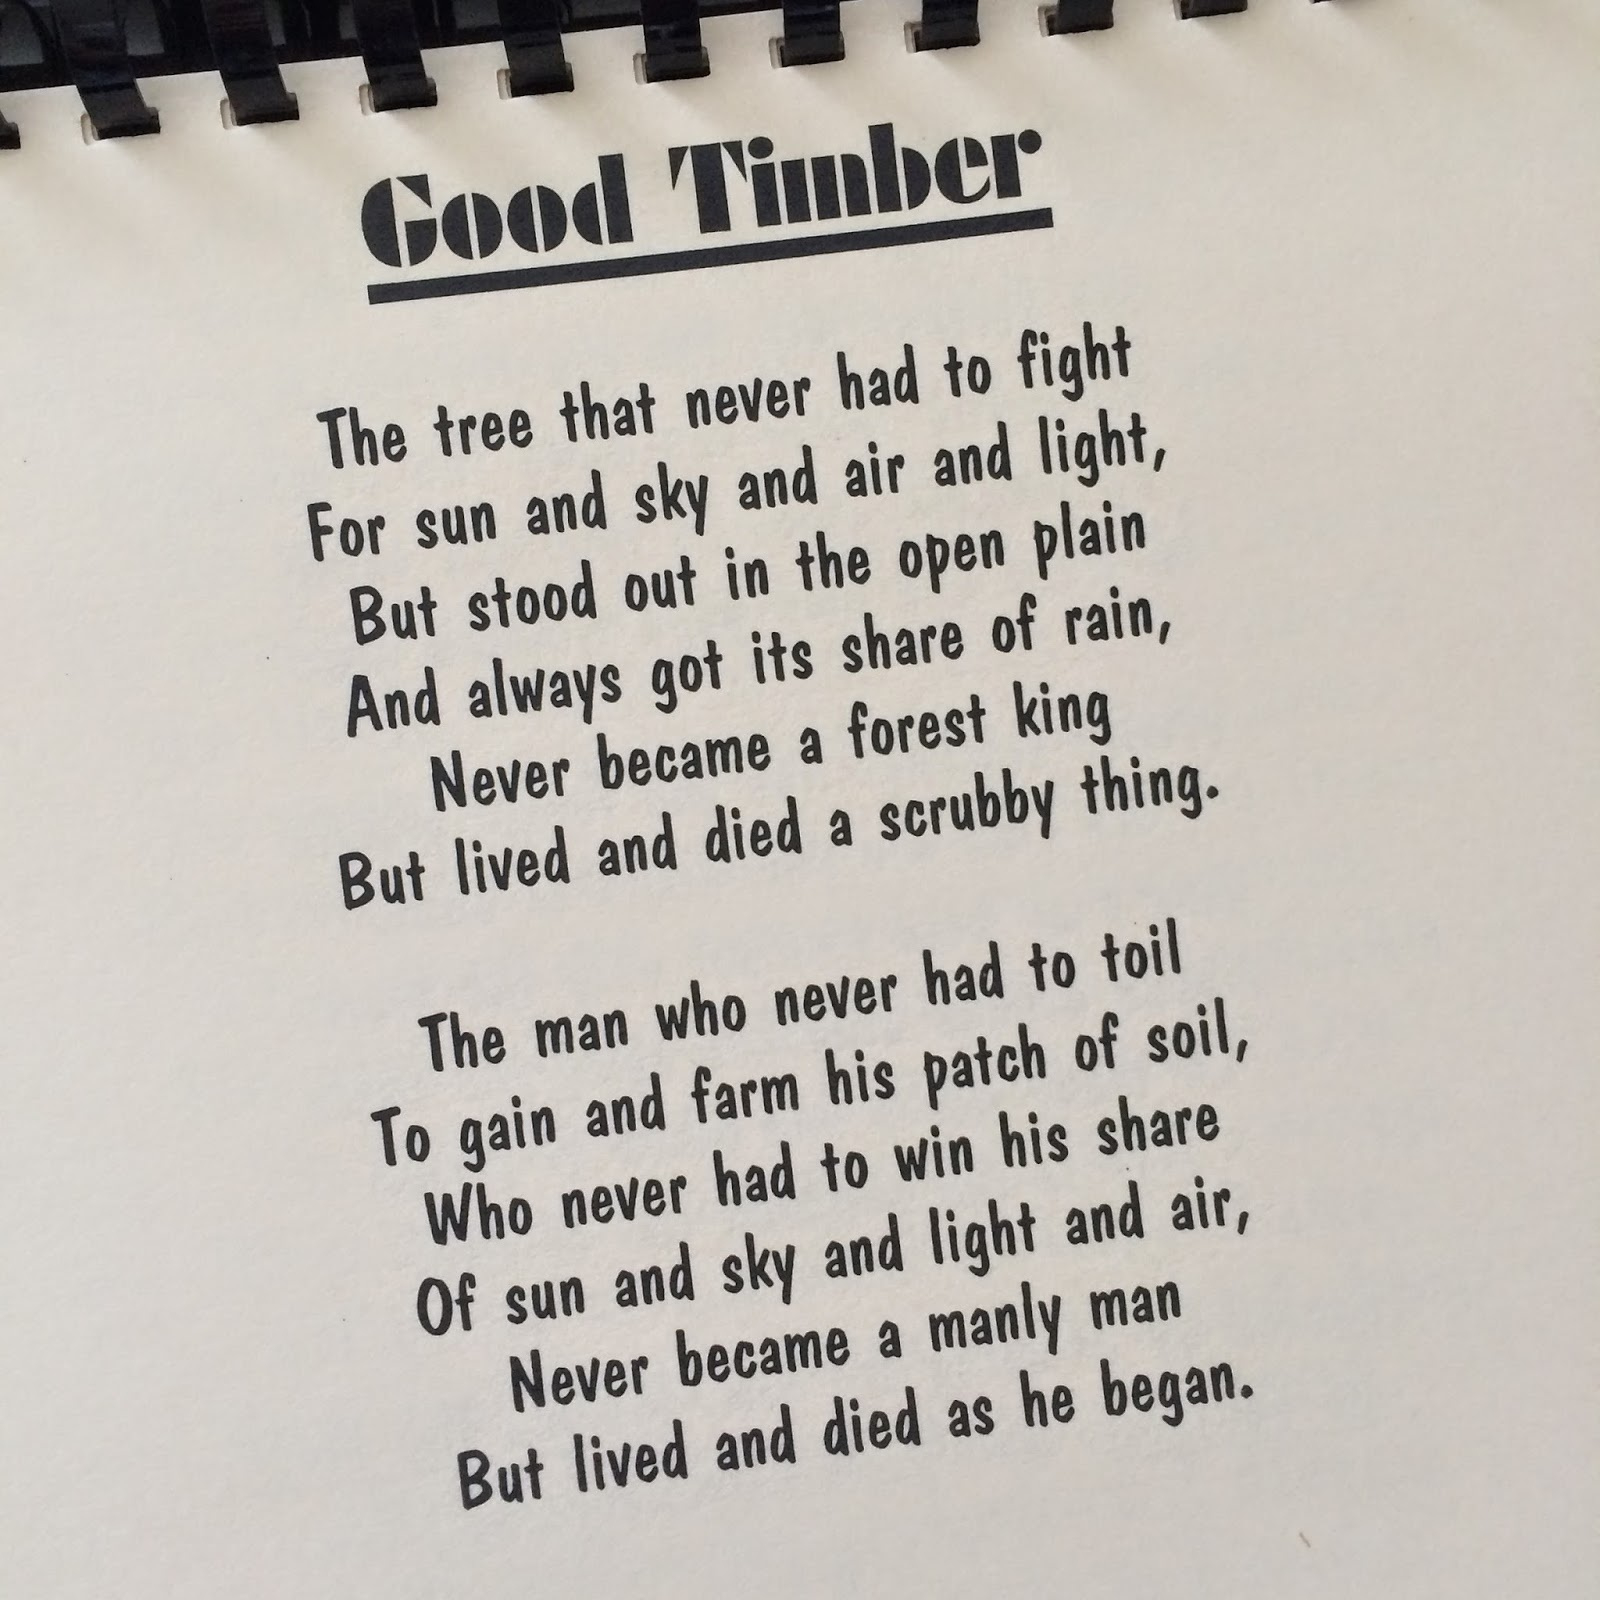 Good Timber
The tree that never had to fight
For sun and sky and air and light,
But stood out in the open plain
And always got its share of rain,
Never became a forest king
But lived and died a scrubby thing.
The man who never had to toil
To gain and farm his patch of soil,
Who never had to win his share
Of sun and sky and light and air,
Never became a manly man
But lived and died as he began.